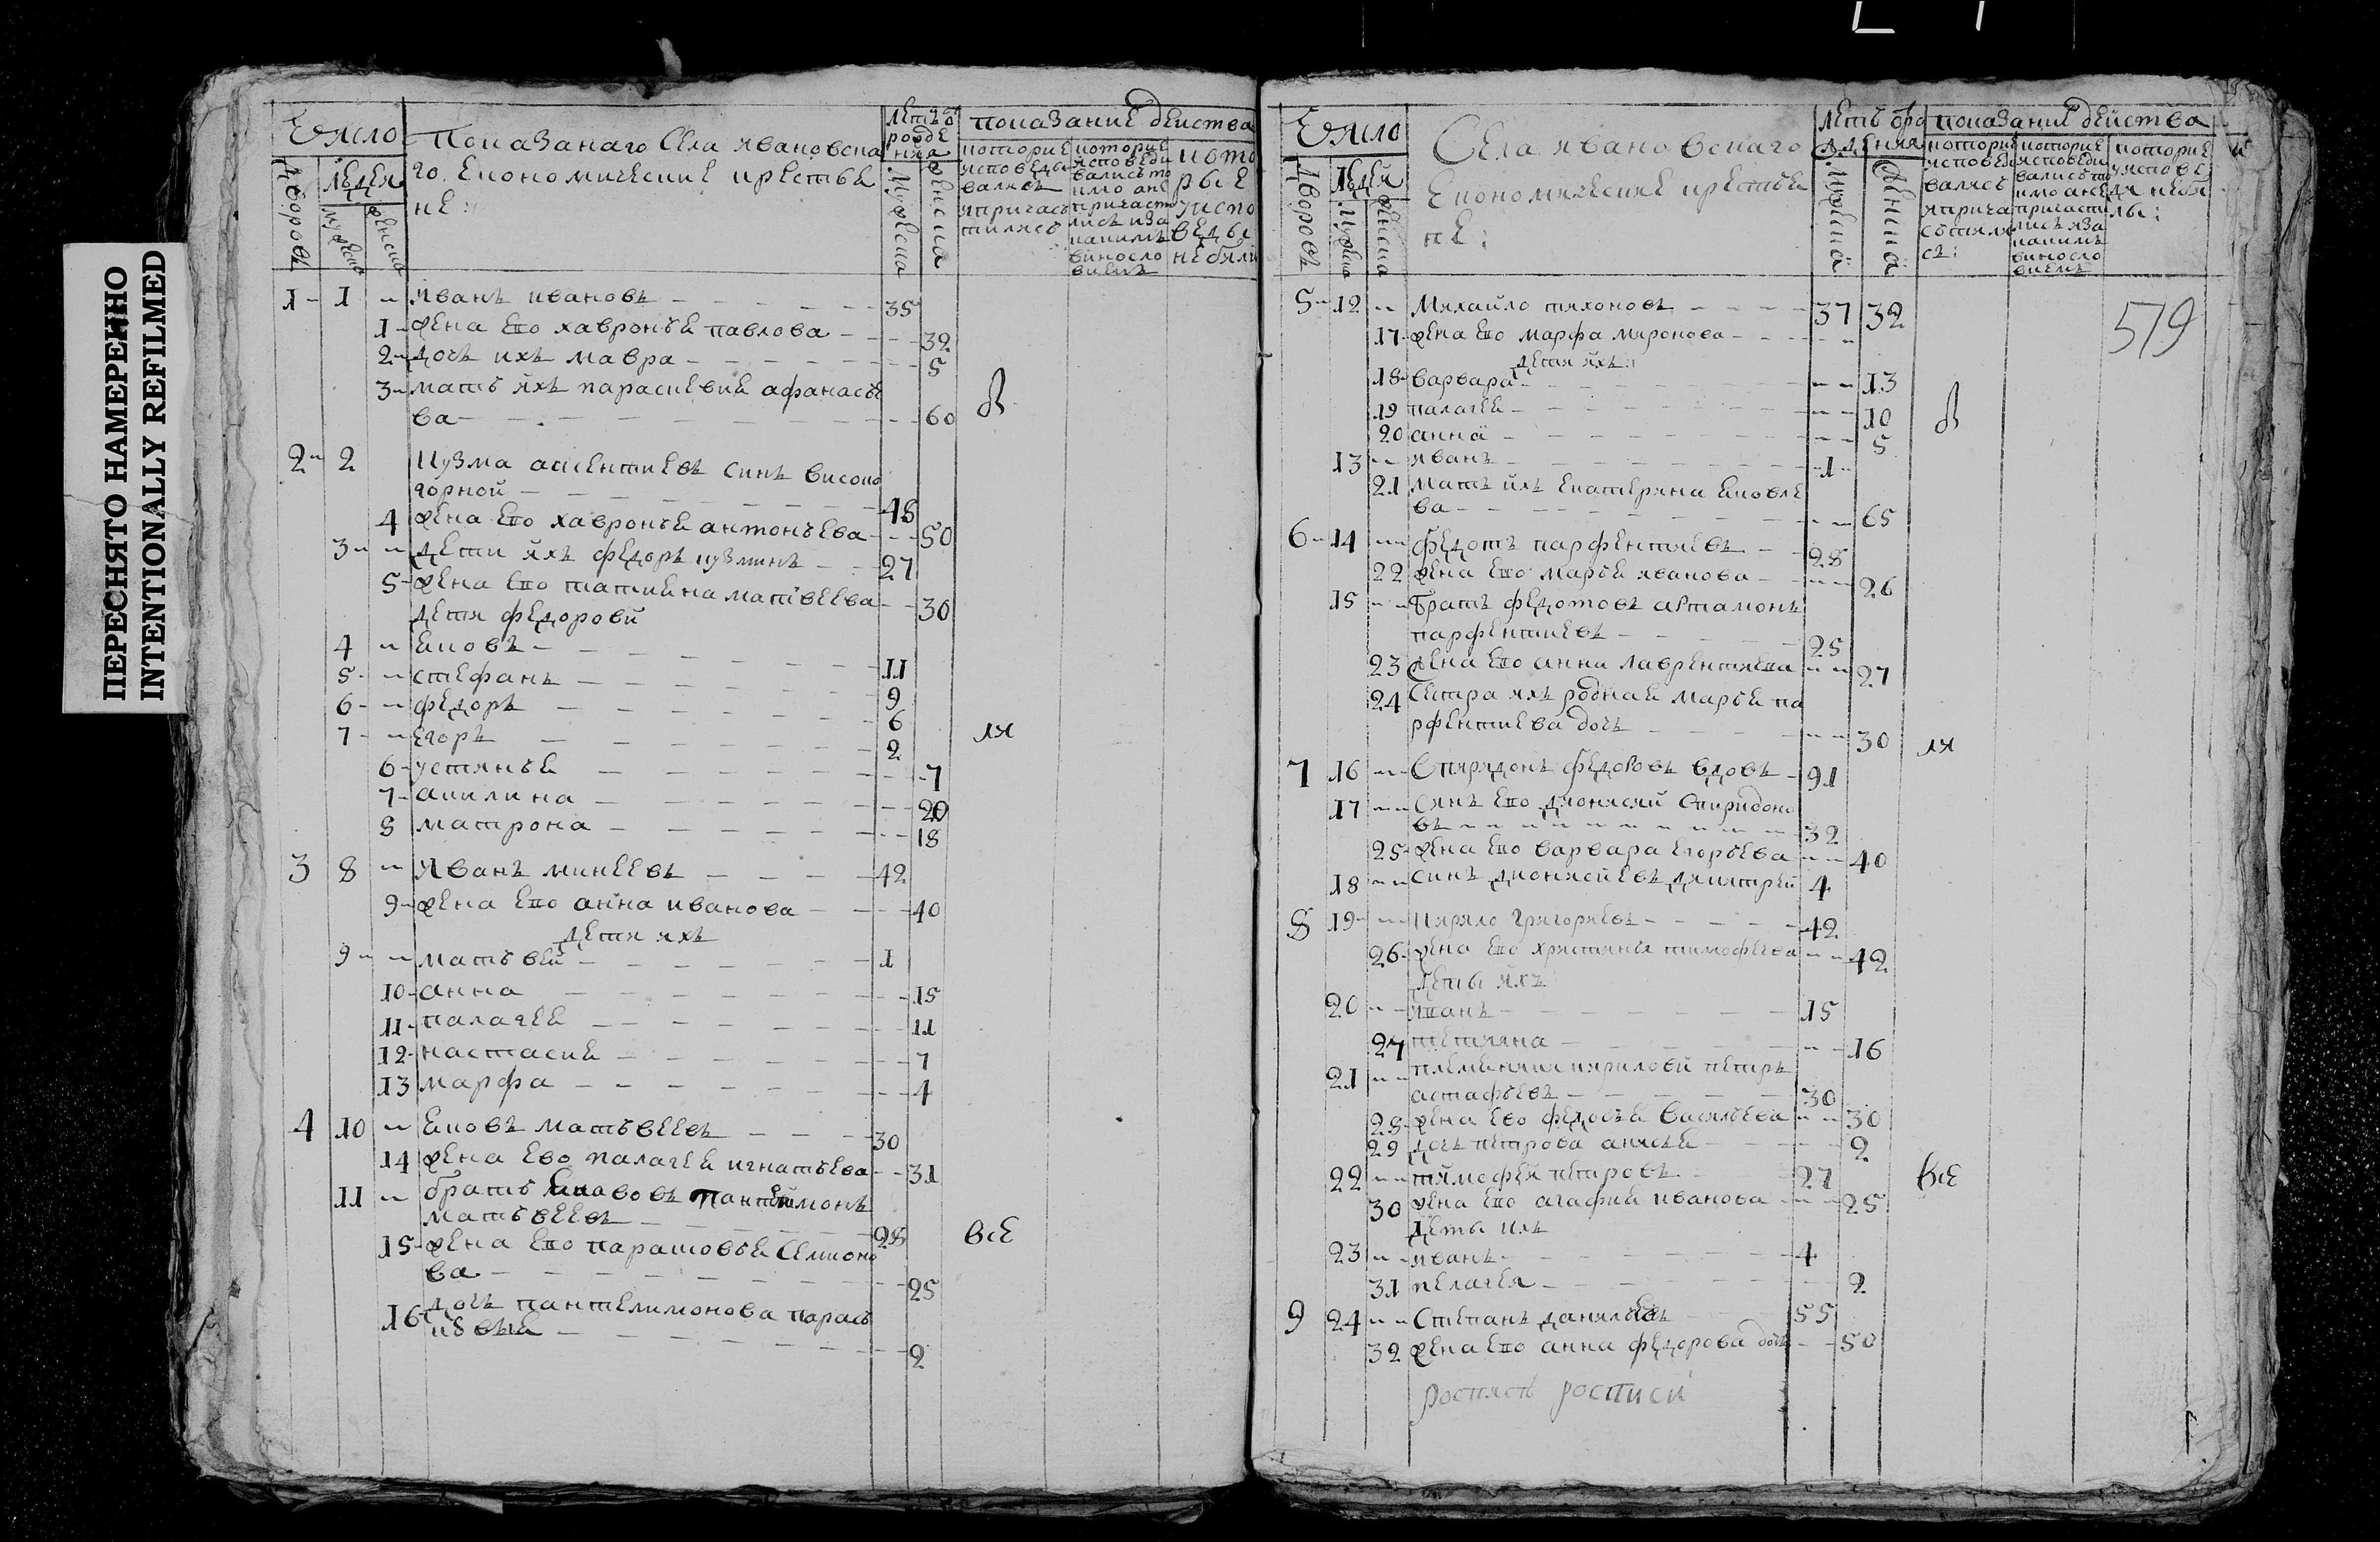 ПЕРЕСНЯТО НАМЕРЕННО
INTENTIONALLY REFILMED
Число
Показанаго Села ивановска
го экономические крестья
не:
летъ ѿ
рожде
ния
показание действа
дворовъ
людей
мужеска
женска
мужеска
женска
которие
исповеды
вались
и причас
тились
которие
исповеди
вались то
кмо а не
причаст
ились и за
какимъ
винесло
виемъ
кото
рые
у испо
веды
не были
1 - 1 - иванъ ивановъ - 35
1 - жена ево хавронья павлова - 32
2 - дочь ихъ мавра - 5
3 - мать ихъ параскевия афанасье
ва - 60
2 - 2 кузма авксентиевъ синъ високо
горной - 48
4 жена ево хавронья антоньева - 50
3 - дети ихъ федоръ кузминъ - 27
5 - жена ево татияна матвеева - 30
дети федорови
4 - яковъ - 11
5 - стефанъ - 9
6 - федоръ - 6
7 - егоръ - 2
6 - устинья - 7
7 - акилина - 20
8 матрона - 18
3 8 - иванъ минеевъ - 42
9 - жена ево анна иванова - 40
дети ихъ
9 - матвей - 1
10 - анна - 15
11 - палагея - 11
12 - настасия - 7
13 марфа - 4
4 10 - яковъ матвеевъ - 30
14 жена ево палагея игнатьева - 31
11 - братъ яковъ пантелимонъ
матвеевъ - 28
15 - жена ево парасковья Семионо
ва - 25
16 дочь пантелимонова парась
ковея - 2
ли
все
Число
Села ивановскаго
экономические крестья
не:
летъ ѿ ро
ждения
показание действа
дворовъ
людей
мужеска
женска
мужеска
женска
которие
исповеди
вались
и прича
стили
сь:
которие
исповеди
вались то
кмо а не
причасти
лись и за
какимъ
винесло
виемъ
которие
у испове
ди не би
ли:
519
5 - 12 - Михайло тихоновъ - 37 32
17 - жена ево марфа миронова -
дети ихъ:
18 - варвара - 13
19 палагея - 10
20 анна - 5
13 - иванъ - 1
21 мать ихъ екатерина яковле
ва - 65
6 - 14 - федотъ парфентиевъ - 28
22 жена ево марья иванова - 26
15 - братъ федотовъ артамонъ
парфентиевъ - 25
23 жена ево анна лаврентиева - 27
24 Сестра ихъ родная марья па
рфентиева дочь - 30
7 16 - Спиридонъ федоровъ вдовъ - 91
17 - Синъ ево дионисий Спиридоно
въ - 32
25 - жена ево варвара егорьева - 40
18 - синъ дионисиевъ димитрей 4
8 19 - Кирило григориевъ - 42
26 - жена ево христиния тимофеева - 42
деты ихъ
20 - иванъ - 15
27 татияна - 16
21 - племянникъ кирилови петръ
астафьевъ - 30
28 - жена ево федосья василиева - 30
29 дочь петрова анисья - 2
22 - тимофей петровъ - 27
30 жена ево агафия иванова - 25
деты ихъ
23 - иванъ - 4
31 пелагея - 2
9 24 - Степанъ данилиевъ - 55
32 жена ево анна федорова дочь - 50
ли
все
росписи